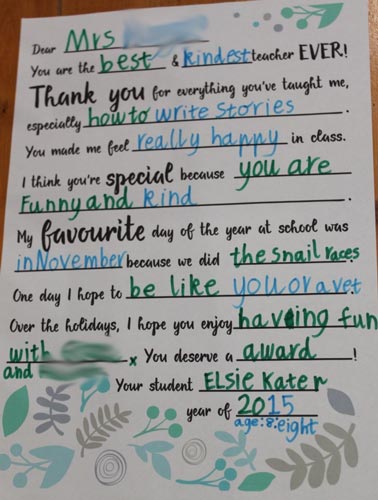 Dear Mrs
You are the best & kindest teacher EVER!
Thank you for everything you've taught me,
especially how to write stories.
You made me feel really happy in class.
I think you're special because you are
Funny and kind.
My favourite day of the year at school was
in November because we did the snail races.
One day I hope to be like you or a vet.
Over the holidays, I hope you enjoy having fun
with
and x You deserve a award!
Your student Elsie Kater
year of 2015
age:8:eight